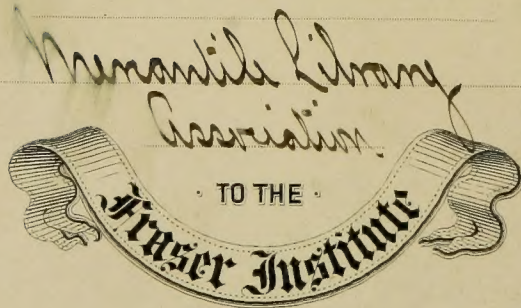 Mercantile Library
Association.
· TO THE ·
Fraser Institute